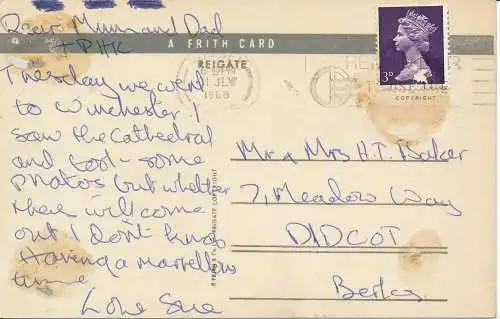 Dear Mum and Dad
A FRITH CARD
REIGATE
Tuesday we went
to Winchester I
saw the Cathedral
and took some
photos but whether
there will come
out I don't know
Having a marvellous
time
Love Sue
JLY
1968
3D
COPYRIGHT
Mr & Mrs H.T. Baker
7, Meadow Way
DIDCOT
Berks.